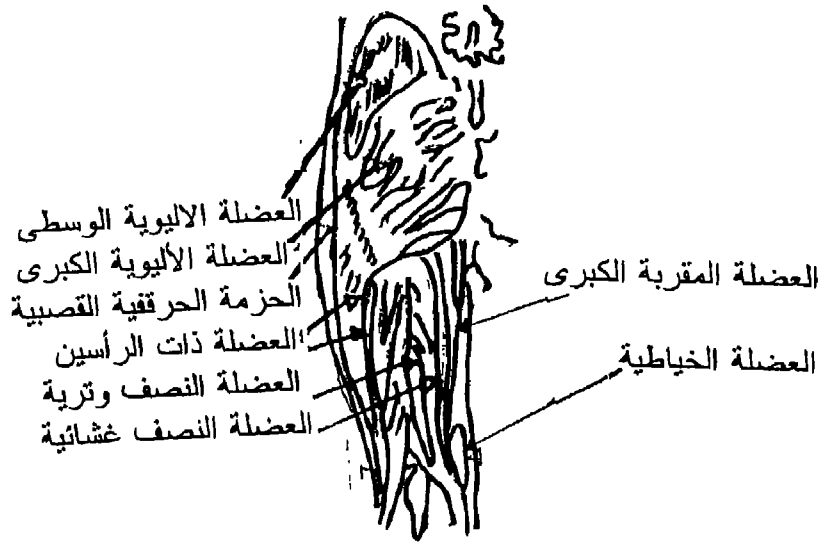 العضلة الاليوية الوسطى
العضلة الأليوية الكبرى
الحزمة الحرقفية القصبية
العضلة ذات الرأسين
العضلة النصف وترية
العضلة النصف غشائية
العضلة المقربة الكبرى
العضلة الخياطية